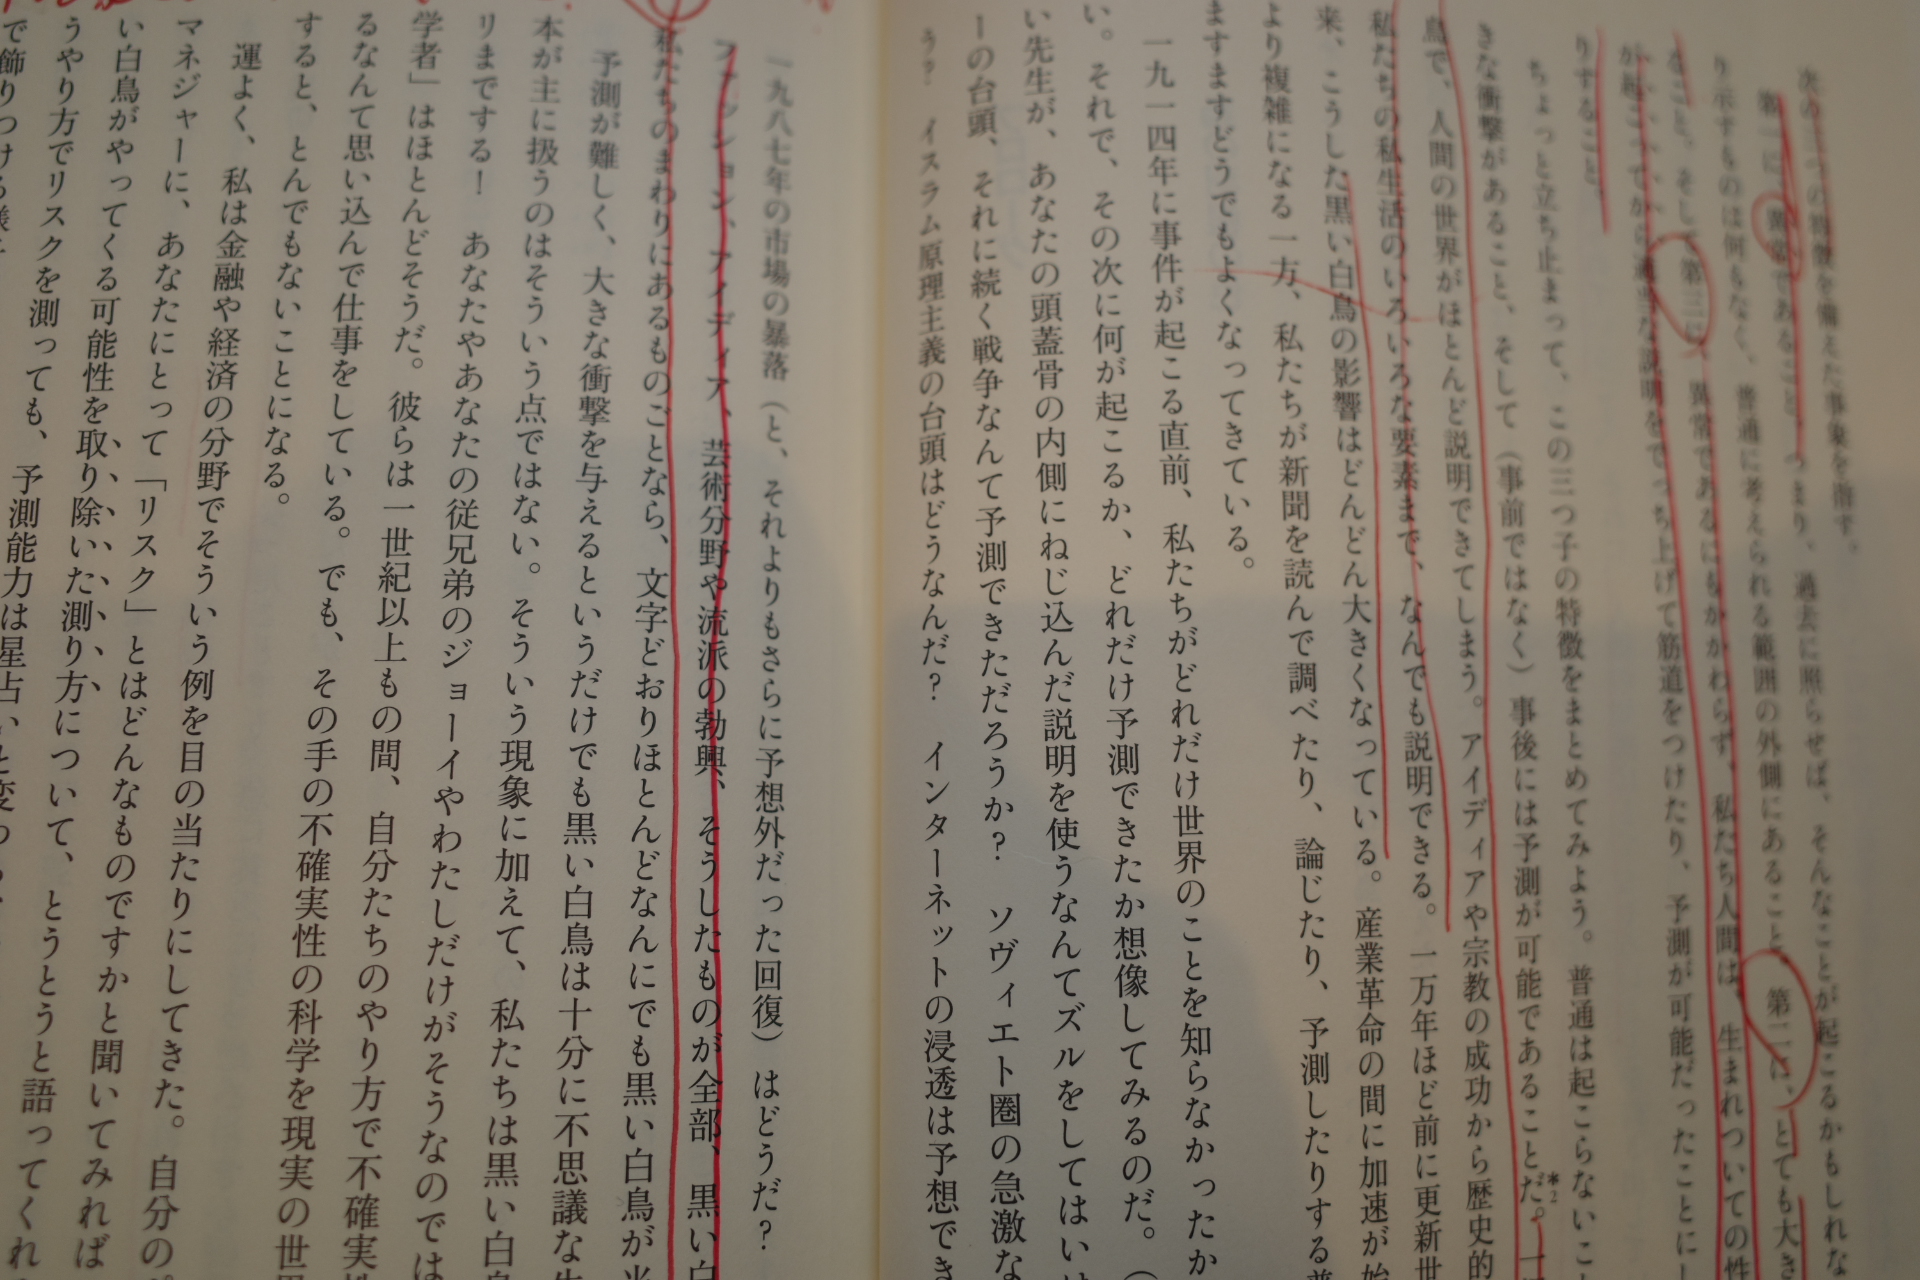 次の三つの特徴を備えた事象を指す。
第一に、異常であること。つまり、過去に照らせば、そんなことが起こるかもしれな
り示すものは何もなく、普通に考えられる範囲の外側にあること。第二に、とても大き
なこと。そして第三に、異常であるにもかかわらず、私たち人間は、生まれついての性
が起こってから適当な説明をでっち上げて筋道をつけたり、予測が可能だったことにし
りすること。
ちょっと立ち止まって、この三つ子の特徴をまとめてみよう。普通は起こらないこ
きな衝撃があること、そして（事前ではなく）事後には予測が可能であることだ。*2
鳥で、人間の世界がほとんど説明できてしまう。アイディアや宗教の成功から歴史的
私たちの私生活のいろいろな要素まで、なんでも説明できる。一万年ほど前に更新世
来、こうした黒い白鳥の影響はどんどん大きくなっている。産業革命の間に加速が始
より複雑になる一方、私たちが新聞を読んで調べたり、論じたり、予測したりする
ますますどうでもよくなってきている。
一九一四年に事件が起こる直前、私たちがどれだけ世界のことを知らなかったか
い。それで、その次に何が起こるか、どれだけ予測できたか想像してみるのだ。（
い先生が、あなたの頭蓋骨の内側にねじ込んだ説明を使うなんてズルをしてはい
ーの台頭、それに続く戦争なんて予測できただろうか？　ソヴィエト圏の急激な
う？　イスラム原理主義の台頭はどうなんだ？　インターネットの浸透は予想でき
一九八七年の市場の暴落（と、それよりもさらに予想外だった回復）はどうだ？
ファッション、アイディア、芸術分野や流派の勃興、そうしたものが全部、黒い白
私たちのまわりにあるものごとなら、文字どおりほとんどなんにでも黒い白鳥が
予測が難しく、大きな衝撃を与えるというだけでも黒い白鳥は十分に不思議な
本が主に扱うのはそういう点ではない。そういう現象に加えて、私たちは黒い白
リまでする！　あなたやあなたの従兄弟のジョーイやわたしだけがそうなのでは
学者」はほとんどそうだ。彼らは一世紀以上もの間、自分たちのやり方で不確実
るなんて思い込んで仕事をしている。でも、その手の不確実性の科学を現実の世
すると、とんでもないことになる。
運よく、私は金融や経済の分野でそういう例を目の当たりにしてきた。自分の
マネジャーに、あなたにとって「リスク」とはどんなものですかと聞いてみれば
い白鳥がやってくる可能性を取り除いた測り方について、とうとうと語ってくれ
うやり方でリスクを測っても、予測能力は星占いと変わ
で飾りつける様子